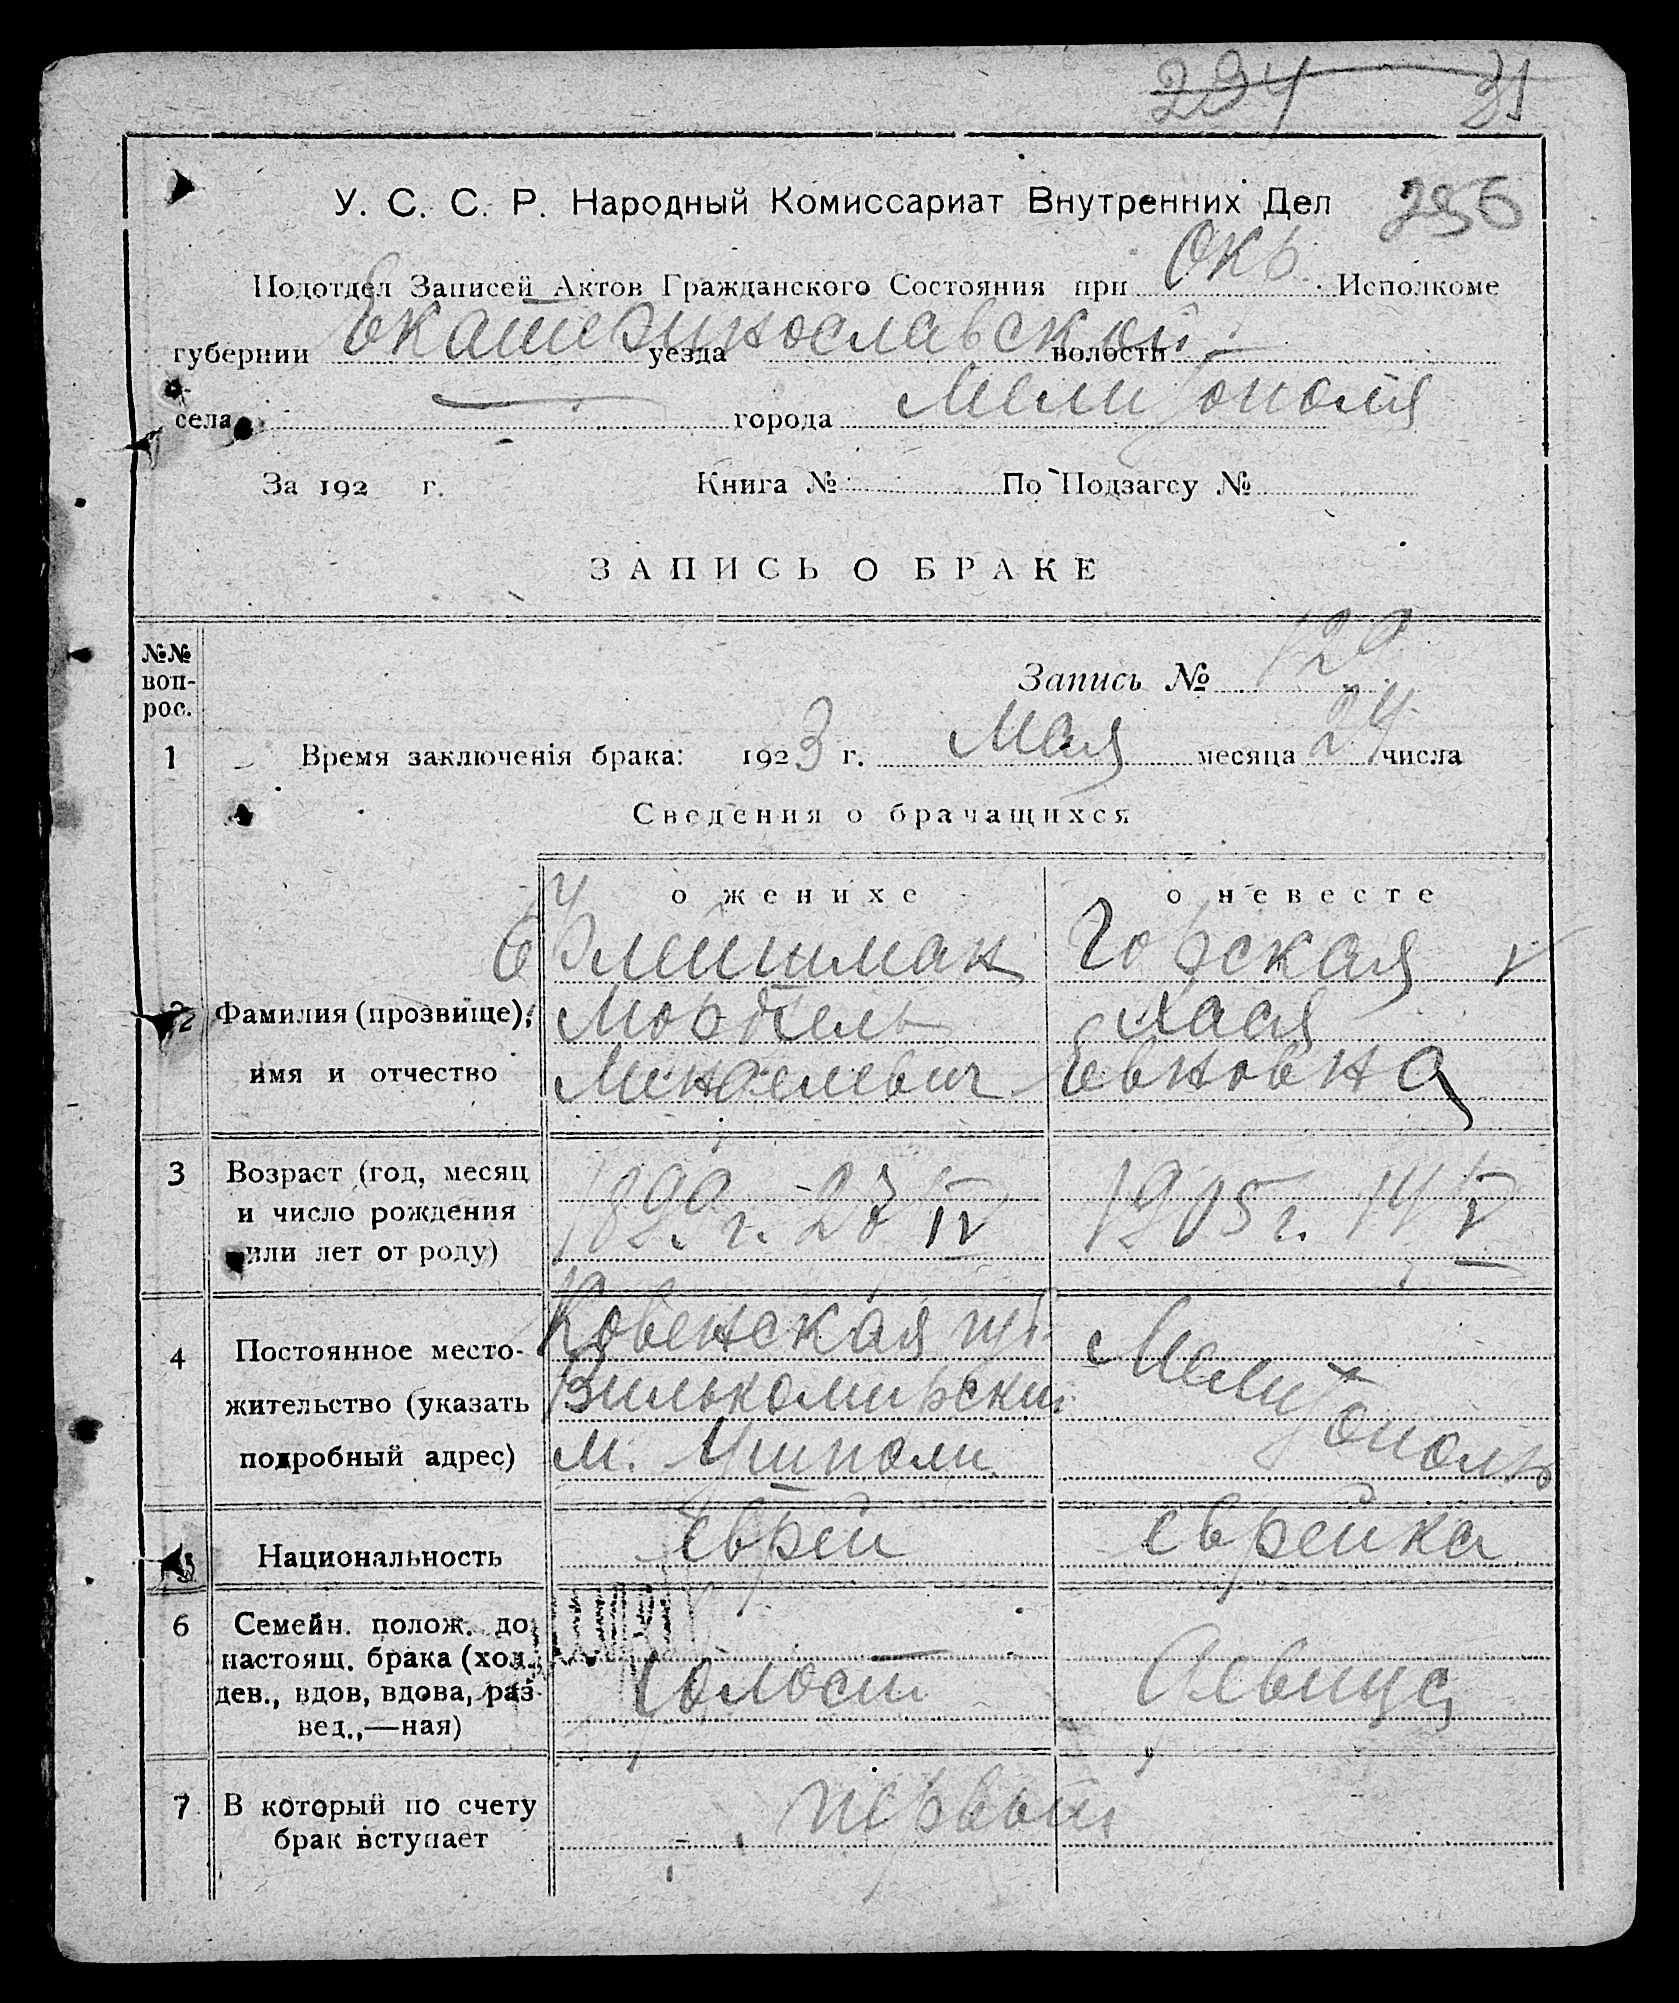 294 31
У. С. С. Р. Народный Комиссариат Внутренних Дел 256
Подотдел Записей Актов Гражданского Состояния при Окр. Исполкоме
губернии Екатеринославской уезда волости
села города Мелитополя
За 192 г. Книга № По Подзагсу №
ЗАПИСЬ О БРАКЕ
№№ воп-
рос.
Запись № 120
1 Время заключенія брака: 1923 г. Мая месяца 24 числа
Сведения о брачащихся
о женихе о невесте
Флейшман Горская
2 Фамилия (прозвище), Мордхель Хася
имя и отчество Менделевич Евновна
3 Возраст (год, месяц
и число рождения 1890 г. 27 IV 1905 г. 14 V
или лет от роду)
4 Постоянное место- Ковенская губ. Мелитополь
жительство (указать Вилькомирский
подробный адрес) м. Ушполи
5 Национальность еврей еврейка
6 Семейн. полож. до
настоящ. брака (хол., холост девица
дев., вдов, вдова, раз-
вед.,—ная)
7 В который по счету первый
брак вступает